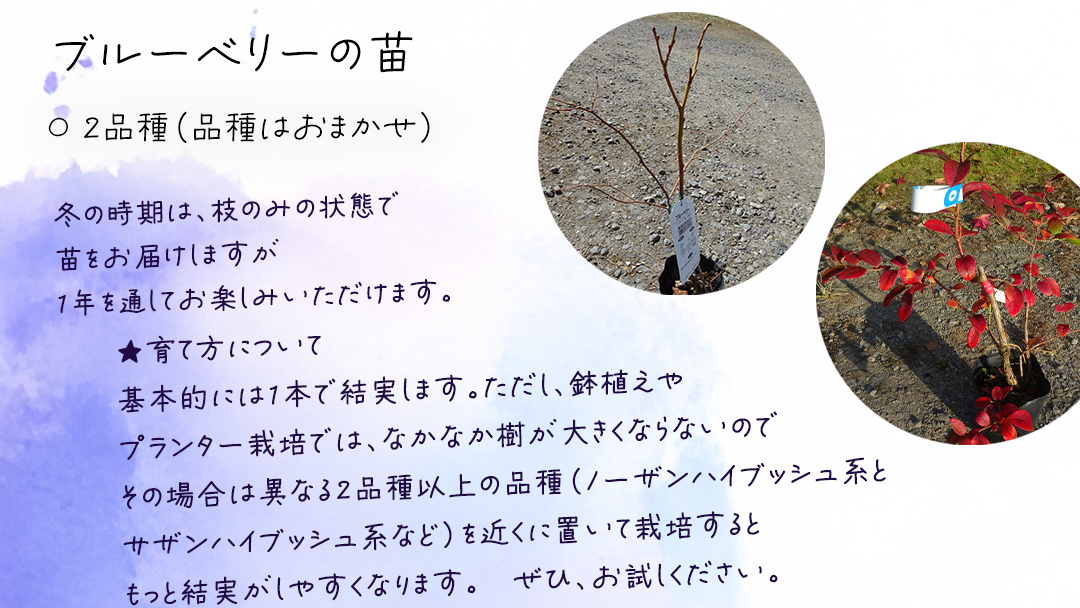 ブルーベリーの苗
○ 2品種(品種はおまかせ)
冬の時期は、枝のみの状態で
苗をお届けしますが
1年を通してお楽しみいただけます。
★育て方について
基本的には1本で結実します。ただし、鉢植えや
プランター栽培では、なかなか樹が大きくならないので
その場合は異なる2品種以上の品種(ノーザンハイブッシュ系と
サザンハイブッシュ系など)を近くに置いて栽培すると
もっと結実がしやすくなります。　ぜひ、お試しください。